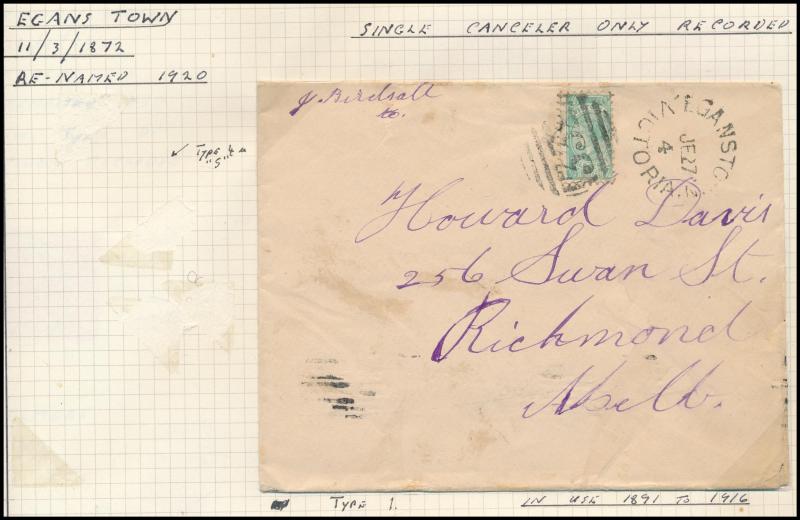 EGANS TOWN
SINGLE CANCELER ONLY RECORDED
11/3/1872
RE-NAMED 1920
EGANSTO
JE 27
4
VICTORIA
Howard Davis
256 Swan St.
Richmond
Melb.
TYPE 1.
IN USE 1891 TO 1916